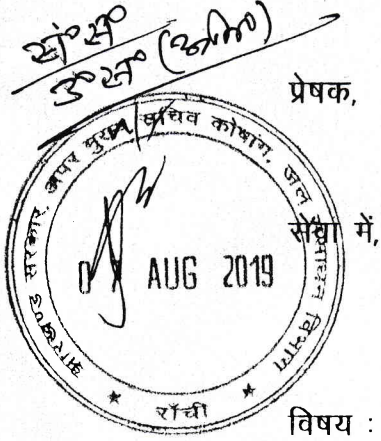 सं० स०
उ० स० (अभि०)
प्रेषक,
झारखण्ड सरकार, अपर मुख्य सचिव कोषांग, जल संसाधन विभाग
सेवा में,
AUG 2019
★ राँची ★
विषय :